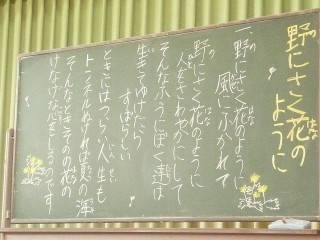 野にさく花の
ように
一、野にさく花のように
風にふかれて
野にさく花のように
人をさわやかにして
そんなふうにぼく達は
生きてゆけたら
すばらしい
ときにはつらい人生も
トンネルぬければ夏の海
そんなときこそ野の花の
けなげな心をしるのです